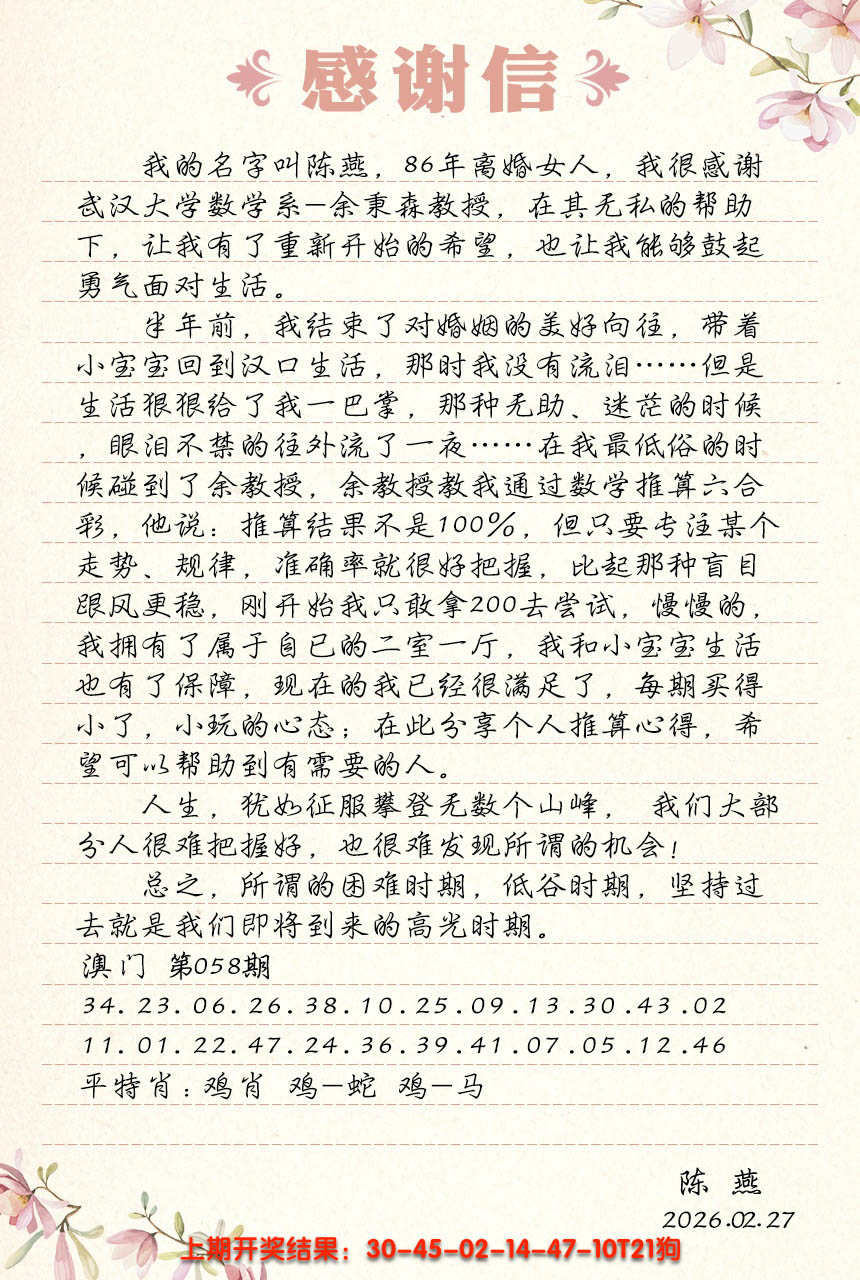 感谢信
我的名字叫陈燕，86年离婚女人，我很感谢
武汉大学数学系—余秉森教授，在其无私的帮助
下，让我有了重新开始的希望，也让我能够鼓起
勇气面对生活。
半年前，我结束了对婚姻的美好向往，带着
小宝宝回到汉口生活，那时我没有流泪……但是
生活狠狠给了我一巴掌，那种无助、迷茫的时候
，眼泪不禁的往外流了一夜……在我最低俗的时
候碰到了余教授，余教授教我通过数学推算六合
彩，他说：推算结果不是100%，但只要专注某个
走势、规律，准确率就很好把握，比起那种盲目
跟风更稳，刚开始我只敢拿200去尝试，慢慢的，
我拥有了属于自已的二室一厅，我和小宝宝生活
也有了保障，现在的我已经很满足了，每期买得
小了，小玩的心态；在此分享个人推算心得，希
望可以帮助到有需要的人。
人生，犹如征服攀登无数个山峰， 我们大部
分人很难把握好，也很难发现所谓的机会！
总之，所谓的困难时期，低谷时期，坚持过
去就是我们即将到来的高光时期。
澳门 第058期
34.23.06.26.38.10.25.09.13.30.43.02
11.01.22.47.24.36.39.41.07.05.12.46
平特肖：鸡肖 鸡—蛇 鸡—马
陈 燕
2026.02.27
上期开奖结果：30-45-02-14-47-10T21狗